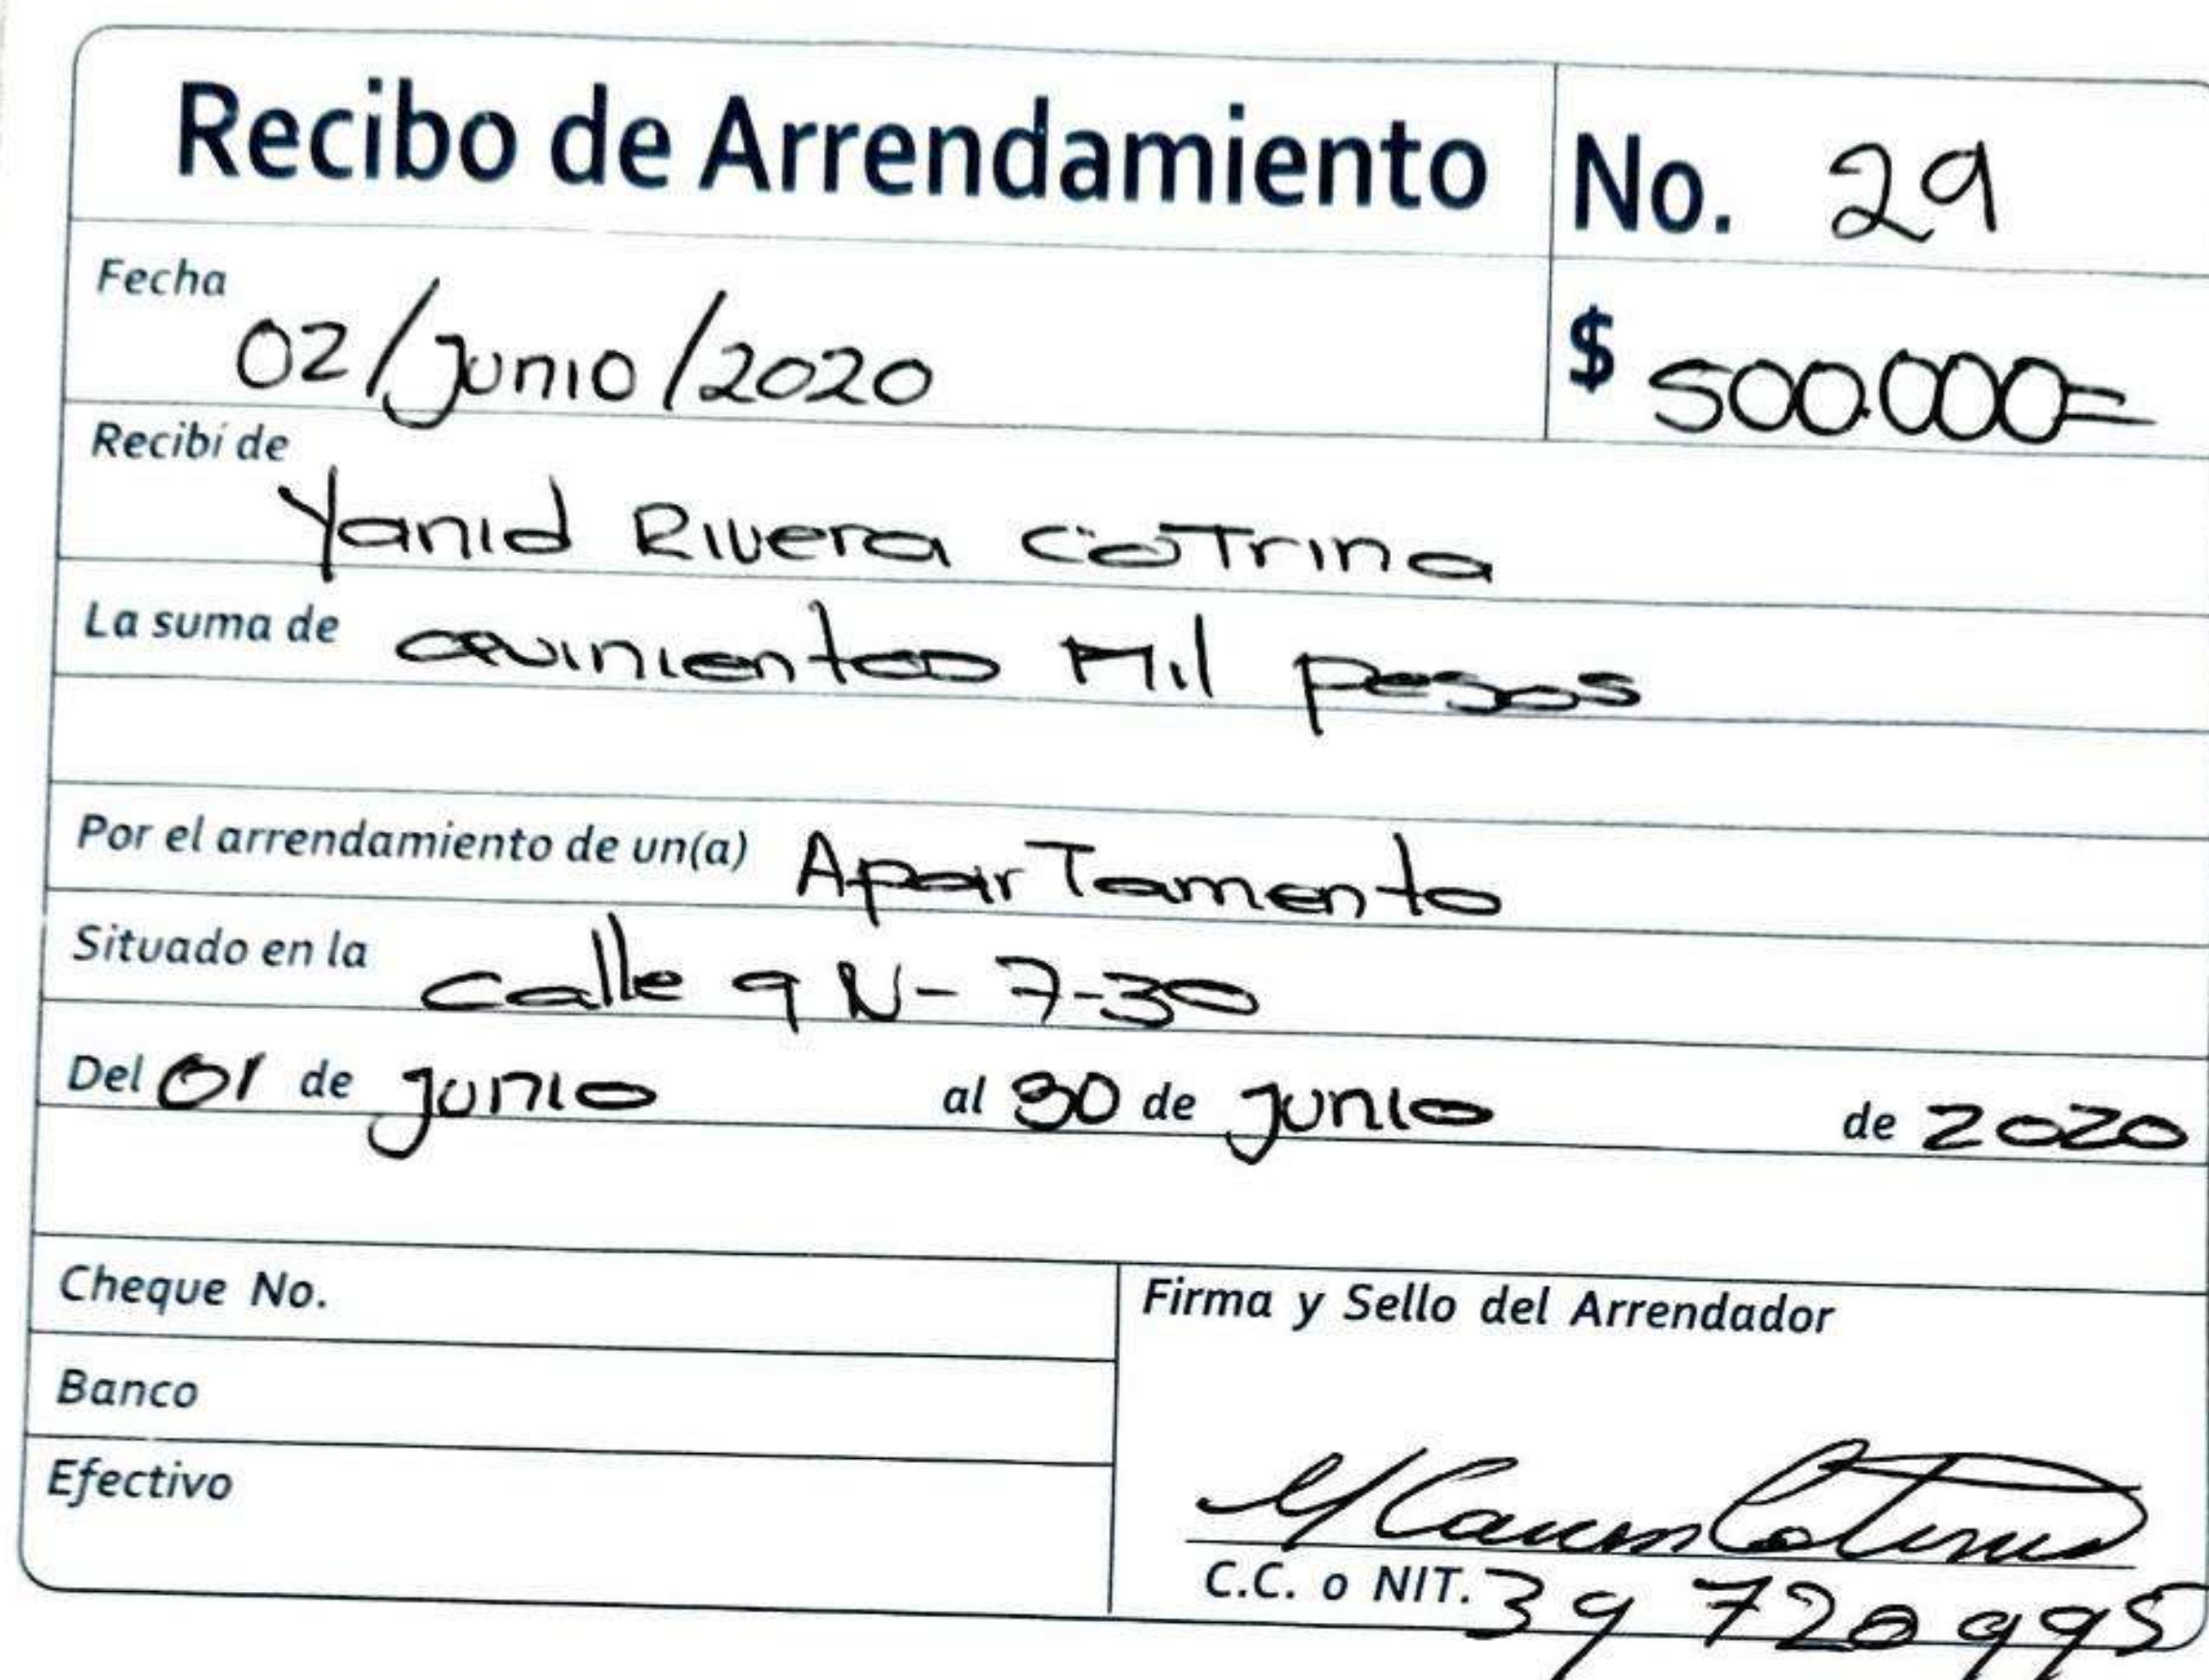 Recibo de Arrendamiento No. 29
Fecha 02/Junio/2020 $ 500.000=
Recibí de Yanid Rivera Cotrina
La suma de Quinientos Mil pesos
Por el arrendamiento de un(a) Apartamento
Situado en la calle 9 N- 7-30
Del 01 de Junio al 30 de Junio de 2020
Cheque No.
Firma y Sello del Arrendador
Banco
Efectivo
C.C. o NIT. 39 720 995